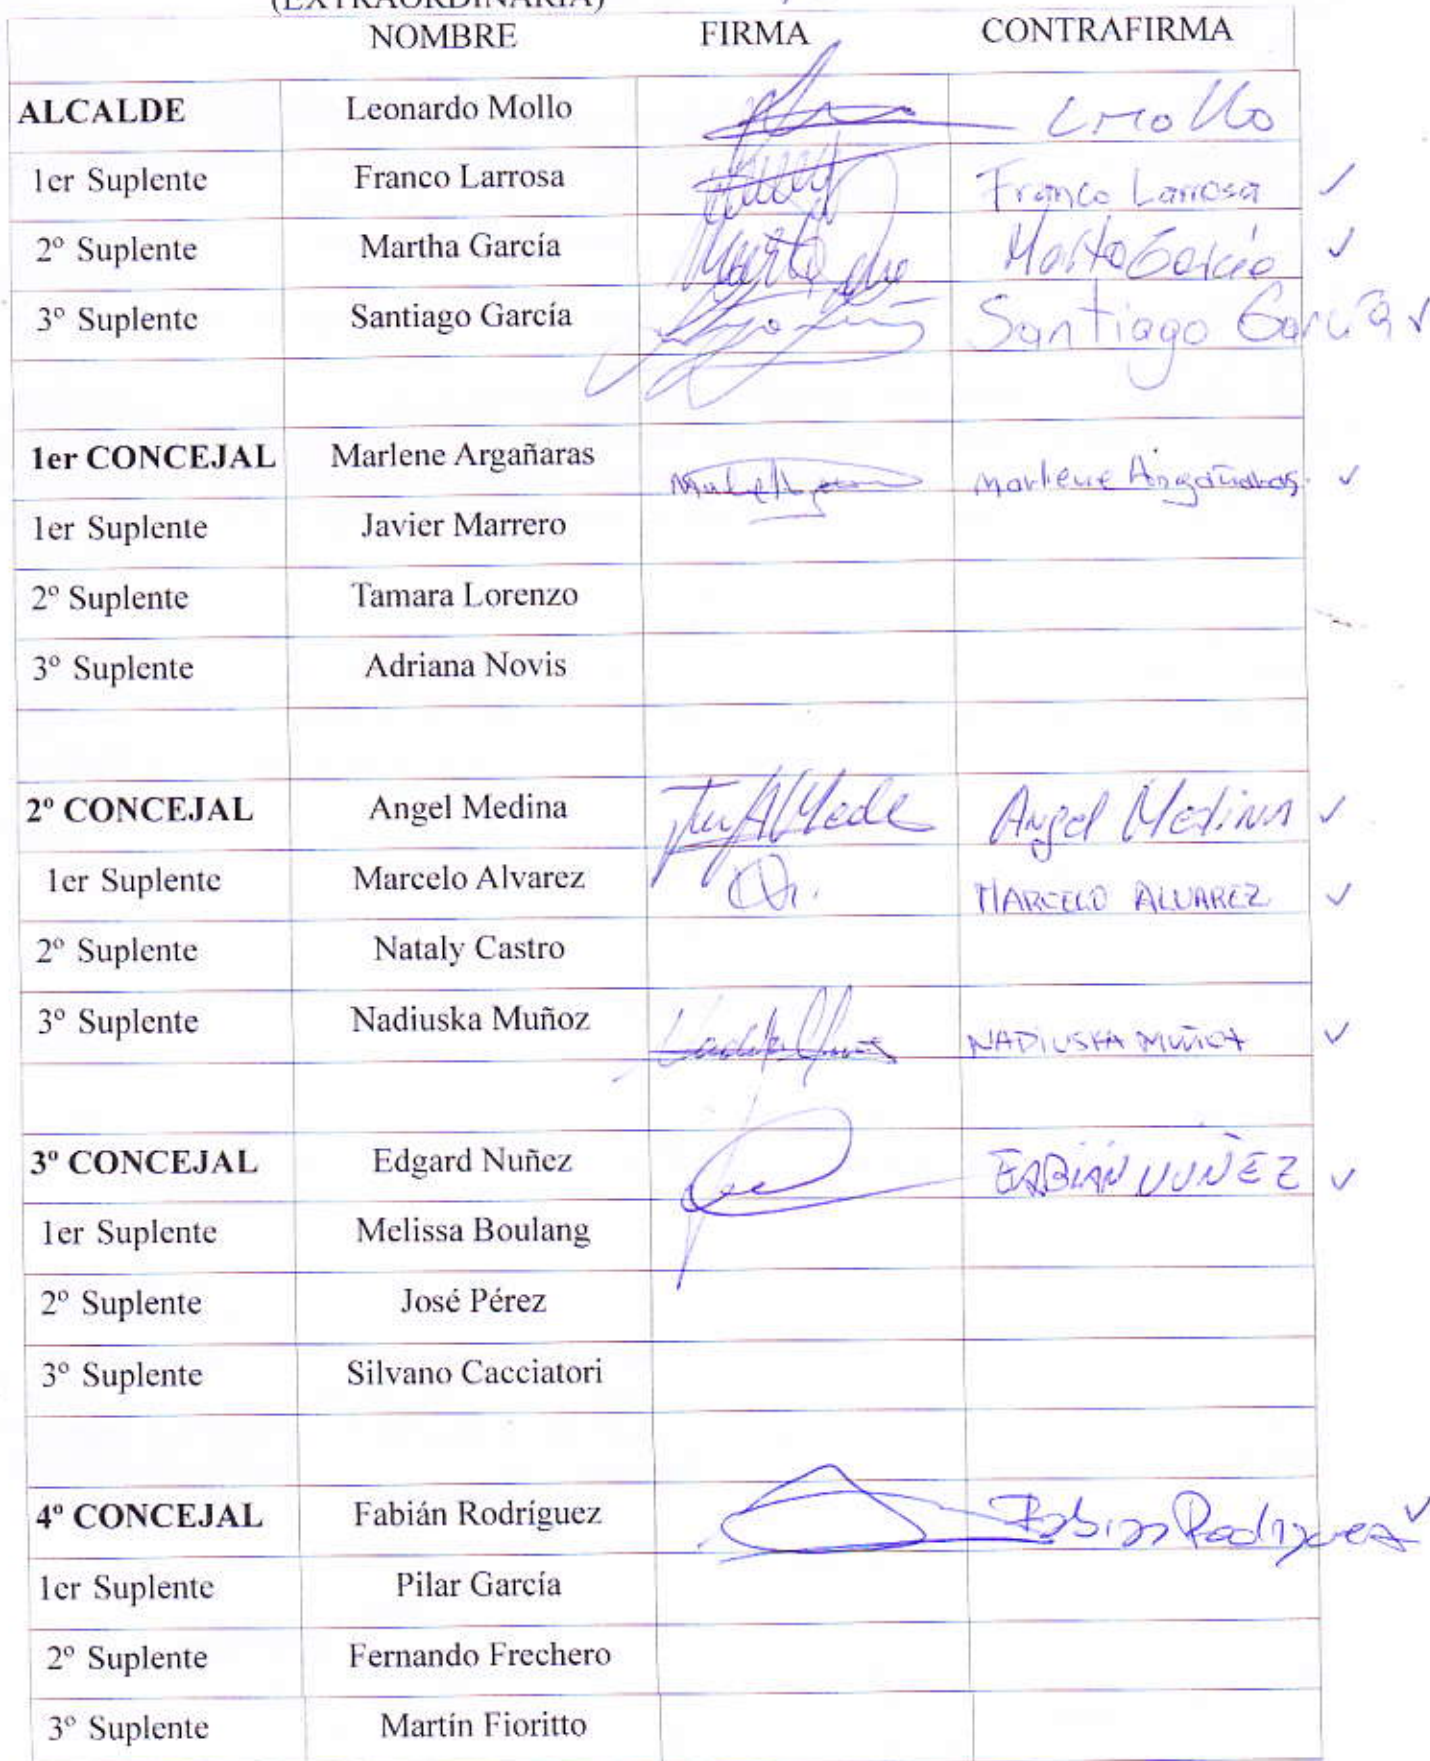 (EXTRAORDINARIA)
NOMBRE FIRMA CONTRAFIRMA
ALCALDE Leonardo Mollo LMollo
1er Suplente Franco Larrosa Franco Larrosa ✓
2º Suplente Martha García Marta García ✓
3º Suplente Santiago García Santiago García ✓
1er CONCEJAL Marlene Argañaras Marlene Argañaras. ✓
1er Suplente Javier Marrero
2º Suplente Tamara Lorenzo
3º Suplente Adriana Novis
2º CONCEJAL Angel Medina Angel Medina ✓
1er Suplente Marcelo Alvarez MARCELO ALVAREZ ✓
2º Suplente Nataly Castro
3º Suplente Nadiuska Muñoz NADIUSKA MUÑOZ ✓
3º CONCEJAL Edgard Nuñez FABIÁN NUÑEZ ✓
1er Suplente Melissa Boulang
2º Suplente José Pérez
3º Suplente Silvano Cacciatori
4º CONCEJAL Fabián Rodríguez Fabian Rodriguez ✓
1er Suplente Pilar García
2º Suplente Fernando Frechero
3º Suplente Martín Fioritto